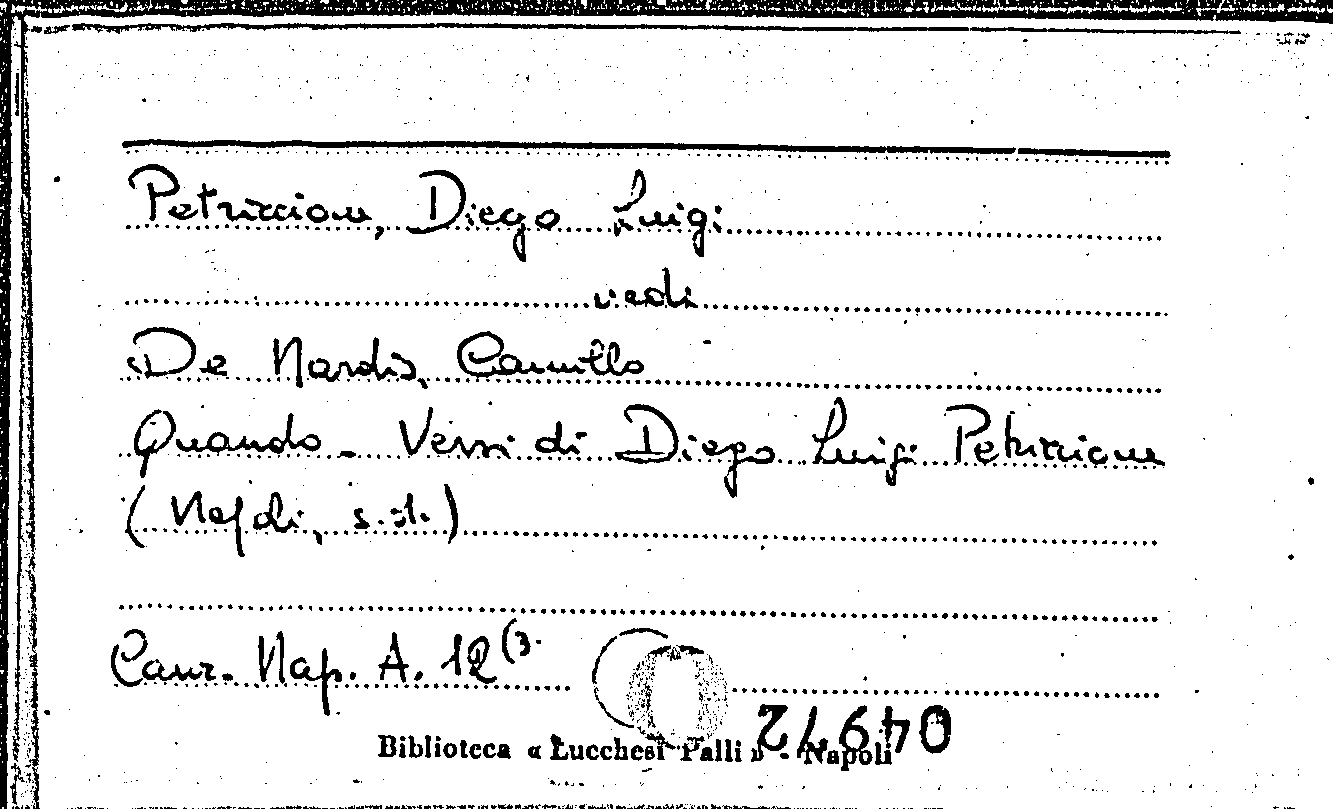 Petriccione, Diego Luigi
vedi
De Nardis, Camillo
Quando - Versi di Diego Luigi Petriccione
(Napoli, s.d.)
Canz. Nap. A. 12 (3.
Biblioteca « Lucchesi Palli » - Napoli
04972